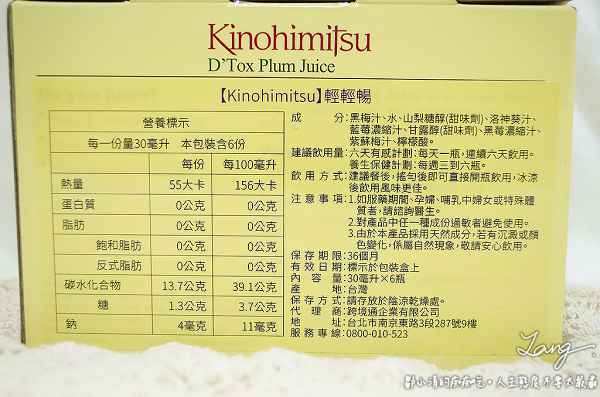 Kinohimitsu
D'Tox Plum Juice
【Kinohimitsu】輕輕暢
營養標示
每一份量30毫升 本包裝含6份
每份 每100毫升
熱量 55大卡 156大卡
蛋白質 0公克 0公克
脂肪 0公克 0公克
飽和脂肪 0公克 0公克
反式脂肪 0公克 0公克
碳水化合物 13.7公克 39.1公克
糖 1.3公克 3.7公克
鈉 4毫克 11毫克
成分:黑梅汁、水、山梨糖醇(甜味劑)、洛神葵汁、
藍莓濃縮汁、甘露醇(甜味劑)、黑莓濃縮汁、
紫蘇梅汁、檸檬酸。
建議飲用量:六天有感計劃:每天一瓶,連續六天飲用。
養生保健計劃:每週三到六瓶。
飲用方式:建議餐後,搖勻後即可直接開瓶飲用,冰涼
後飲用風味更佳。
注意事項:1.如服藥期間、孕婦、哺乳中婦女或特殊體
質者,請諮詢醫生。
2.對產品中任一種成份過敏者避免使用。
3.由於本產品採用天然成分,若有沉澱或顏
色變化,係屬自然現象,敬請安心飲用。
保存期限:36個月
有效日期:標示於包裝盒上
內容量:30毫升×6瓶
產地:台灣
保存方式:請存放於陰涼乾燥處。
代理商:跨境通企業有限公司
地址:台北市南京東路3段287號9樓
服務專線:0800-010-523
Lang